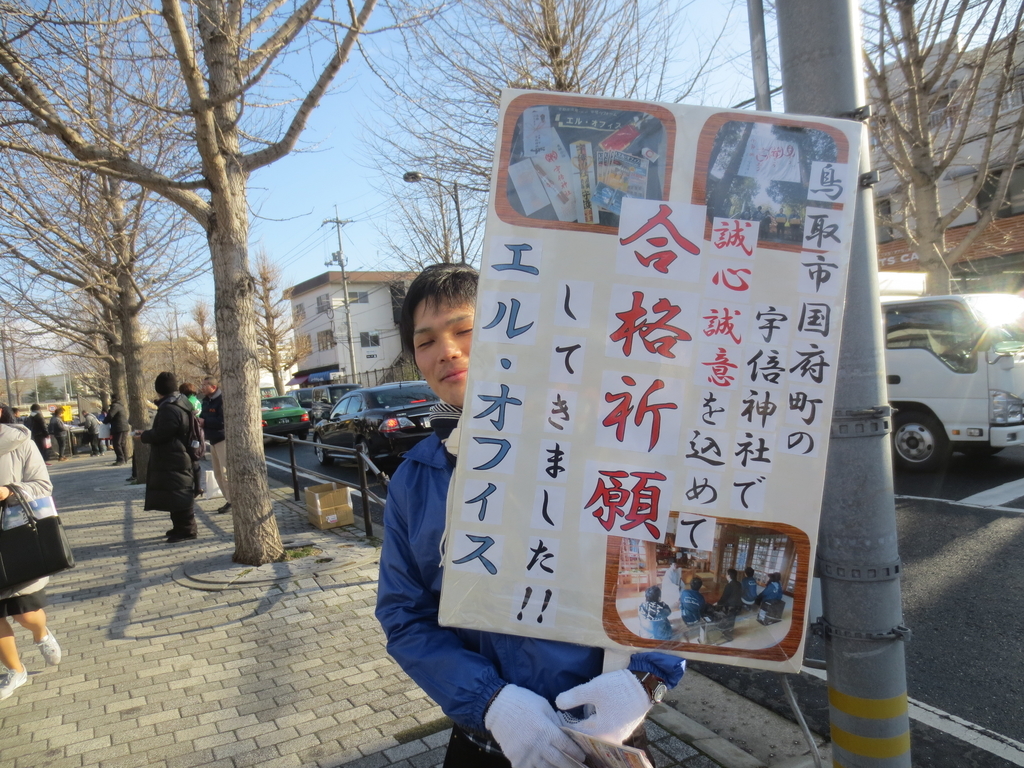 鳥取市国府町の
宇倍神社で
誠心誠意を込めて
合格祈願
してきました!!
エル・オフィス
エル・オフィス